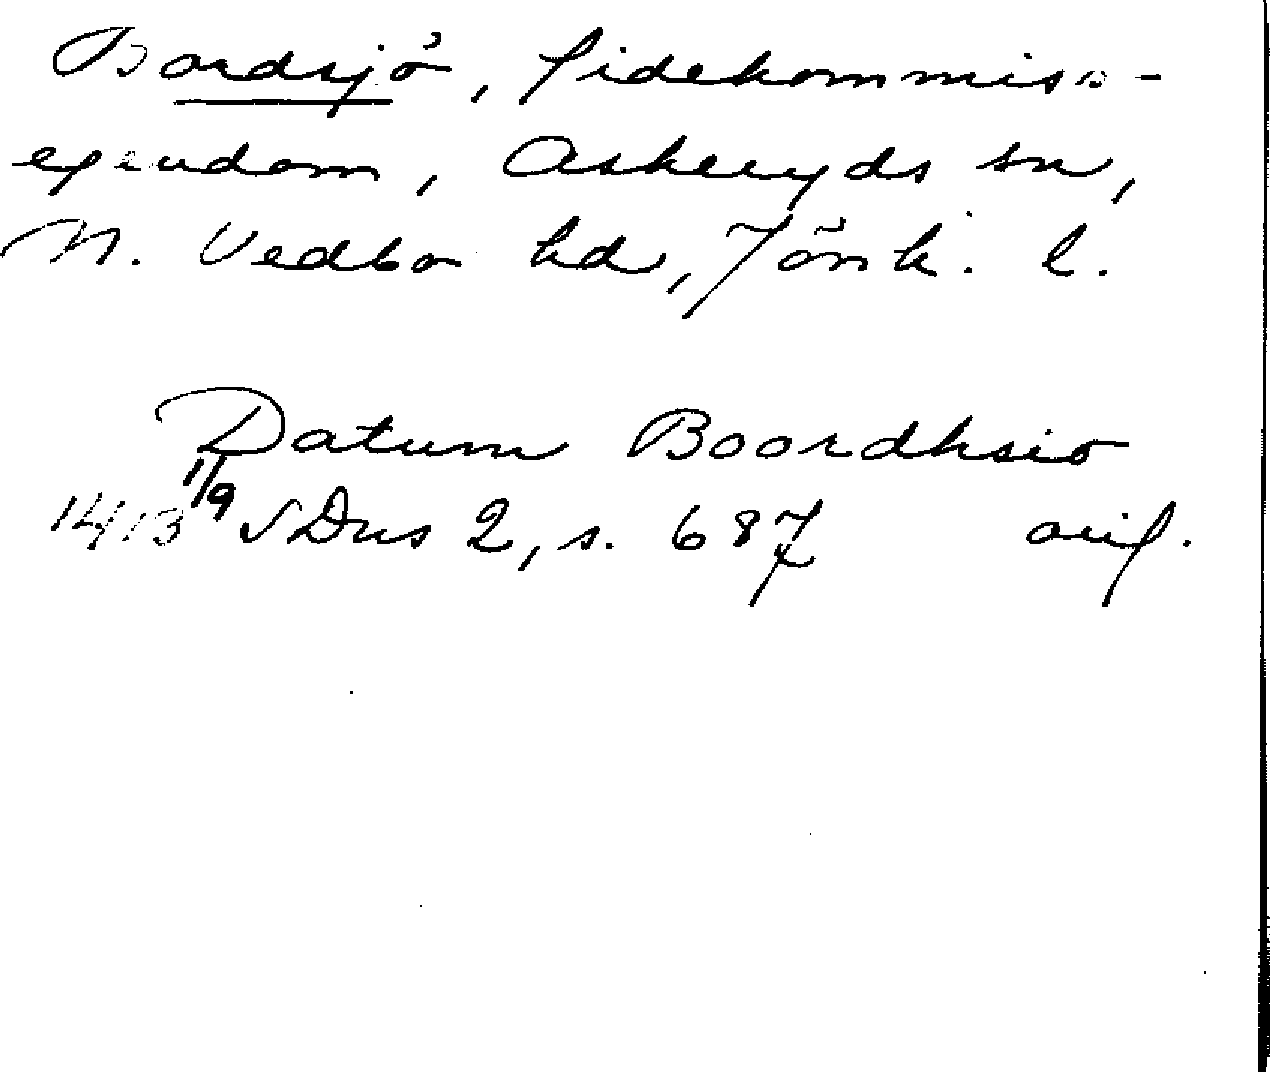 Bordsjö, fidekommiss-
egendom, Askeryds sn,
N. Vedbo hd, Jönk. l.
Datum Boordhsio
1413 1/9 SDns 2, s. 687 avif.